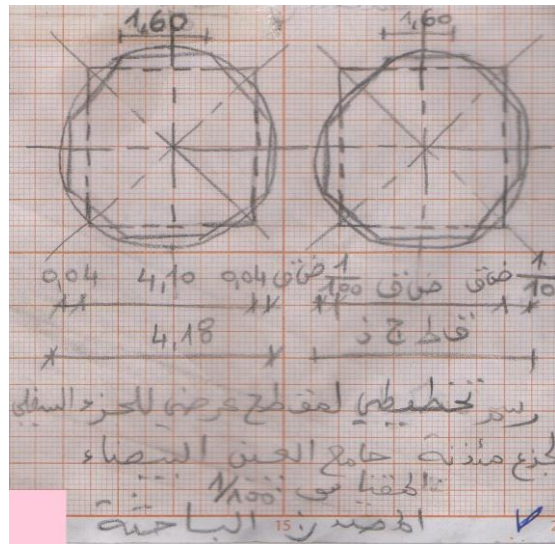 1,60 1,60
0,04 4,10 0,04 ض ق 1/100 ض ق ض ق 1/10
4,18 ق ط ج ذ
رسم تخطيطي لمقطع عرضي للجزء السفلي
لجذع مئذنة جامع العين البيضاء
المقياس: 1/100
المصدر: الباحثة
15 2